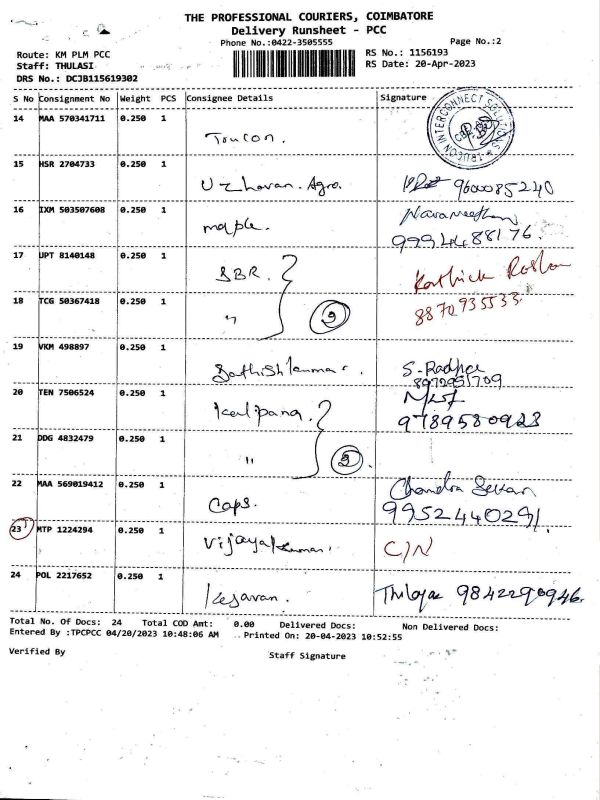 THE PROFESSIONAL COURIERS, COIMBATORE
Delivery Runsheet - PCC
Phone No.:0422-3505555 Page No.:2
Route: KM PLM PCC RS No.: 1156193
Staff: THULASI RS Date: 20-Apr-2023
DRS No.: DCJB115619302
S No Consignment No Weight PCS Consignee Details Signature
14 MAA 570341711 0.250 1
TRUCON INTERCONNECT SOLUTIONS
15 HSR 2704733 0.250 1
Uzhavan Agro. 9600085240
16 IXM 503507608 0.250 1 Navaneethan
maple. 9994488176.
17 UPT 8140148 0.250 1
SBR. Karthick
18 TCG 50367418 0.250 1 8870935533
" 2
19 VKM 498897 0.250 1
Sathishkumar. S. Radha
8972951709
20 TEN 7506524 0.250 1
9789580923
21 DDG 4832479 0.250 1
" 2
22 MAA 569019412 0.250 1 Chandra Sekar
Caps. 9952440291.
23 MTP 1224294 0.250 1
Vijayakumar. C/N
24 POL 2217652 0.250 1
Kesavan. 9842290946.
Total No. Of Docs: 24 Total COD Amt: 0.00 Delivered Docs: Non Delivered Docs:
Entered By :TPCPCC 04/20/2023 10:48:06 AM Printed On: 20-04-2023 10:52:55
Verified By Staff Signature